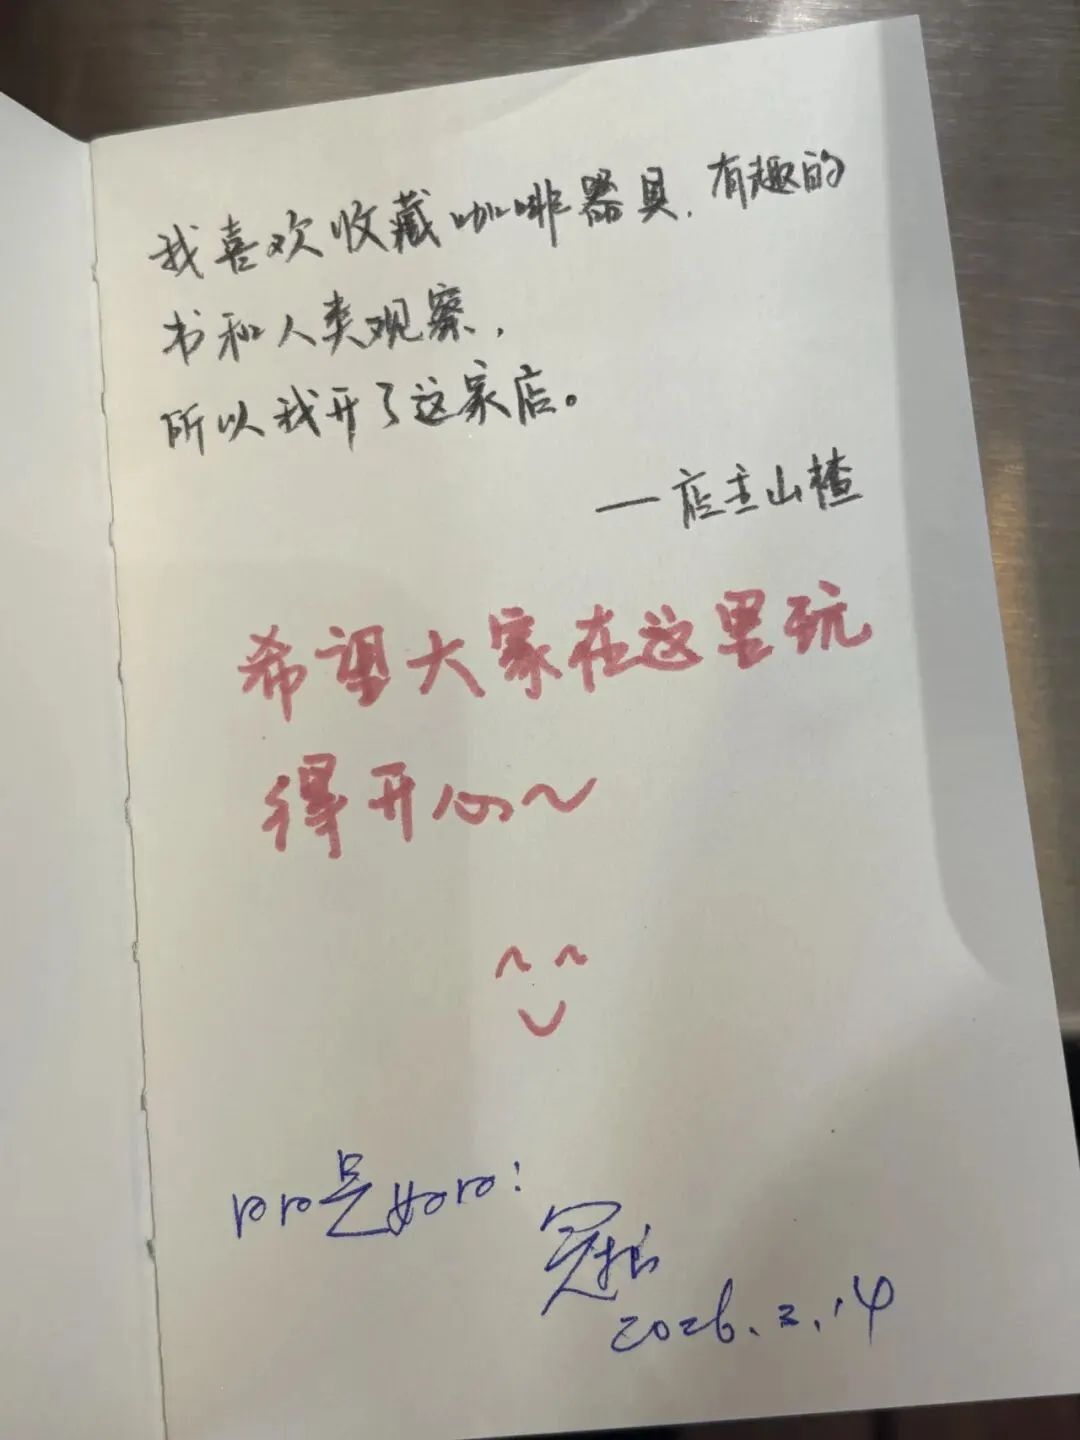 我喜欢收藏咖啡器具，有趣的
书和人类观察，
所以我开了这家店。
—店主山楂
希望大家在这里玩
得开心～
是
2026.2.14